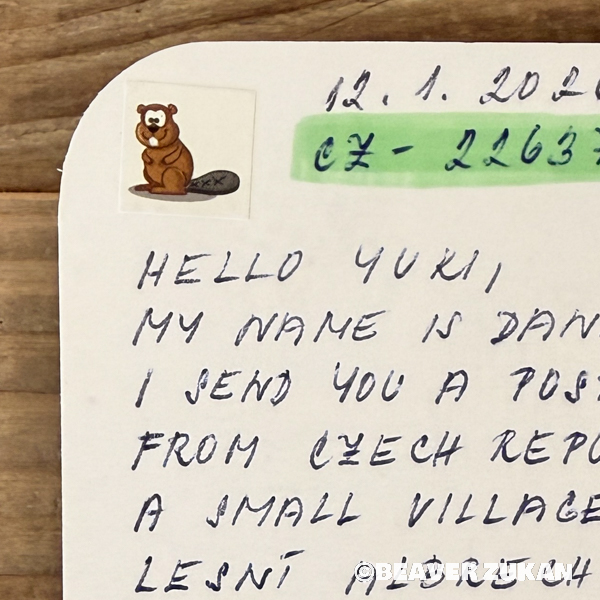 12. 1. 202
CZ - 22637
HELLO YUKI,
MY NAME IS DAN
I SEND YOU A POS
FROM CZECH REPU
A SMALL VILLAGE
LESNÍ ALBRECH
©BEAVER ZUKAN